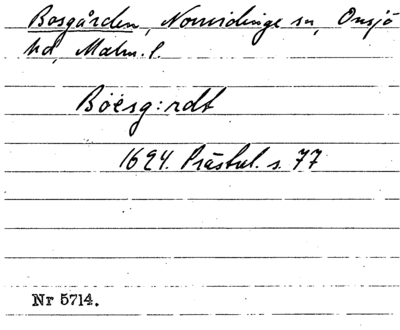 Bosgården, Norrvidinge sn, Onsjö
hd, Malm. l.
Böésg:rdt
1624. Prästul. s. 77
Nr 5714.